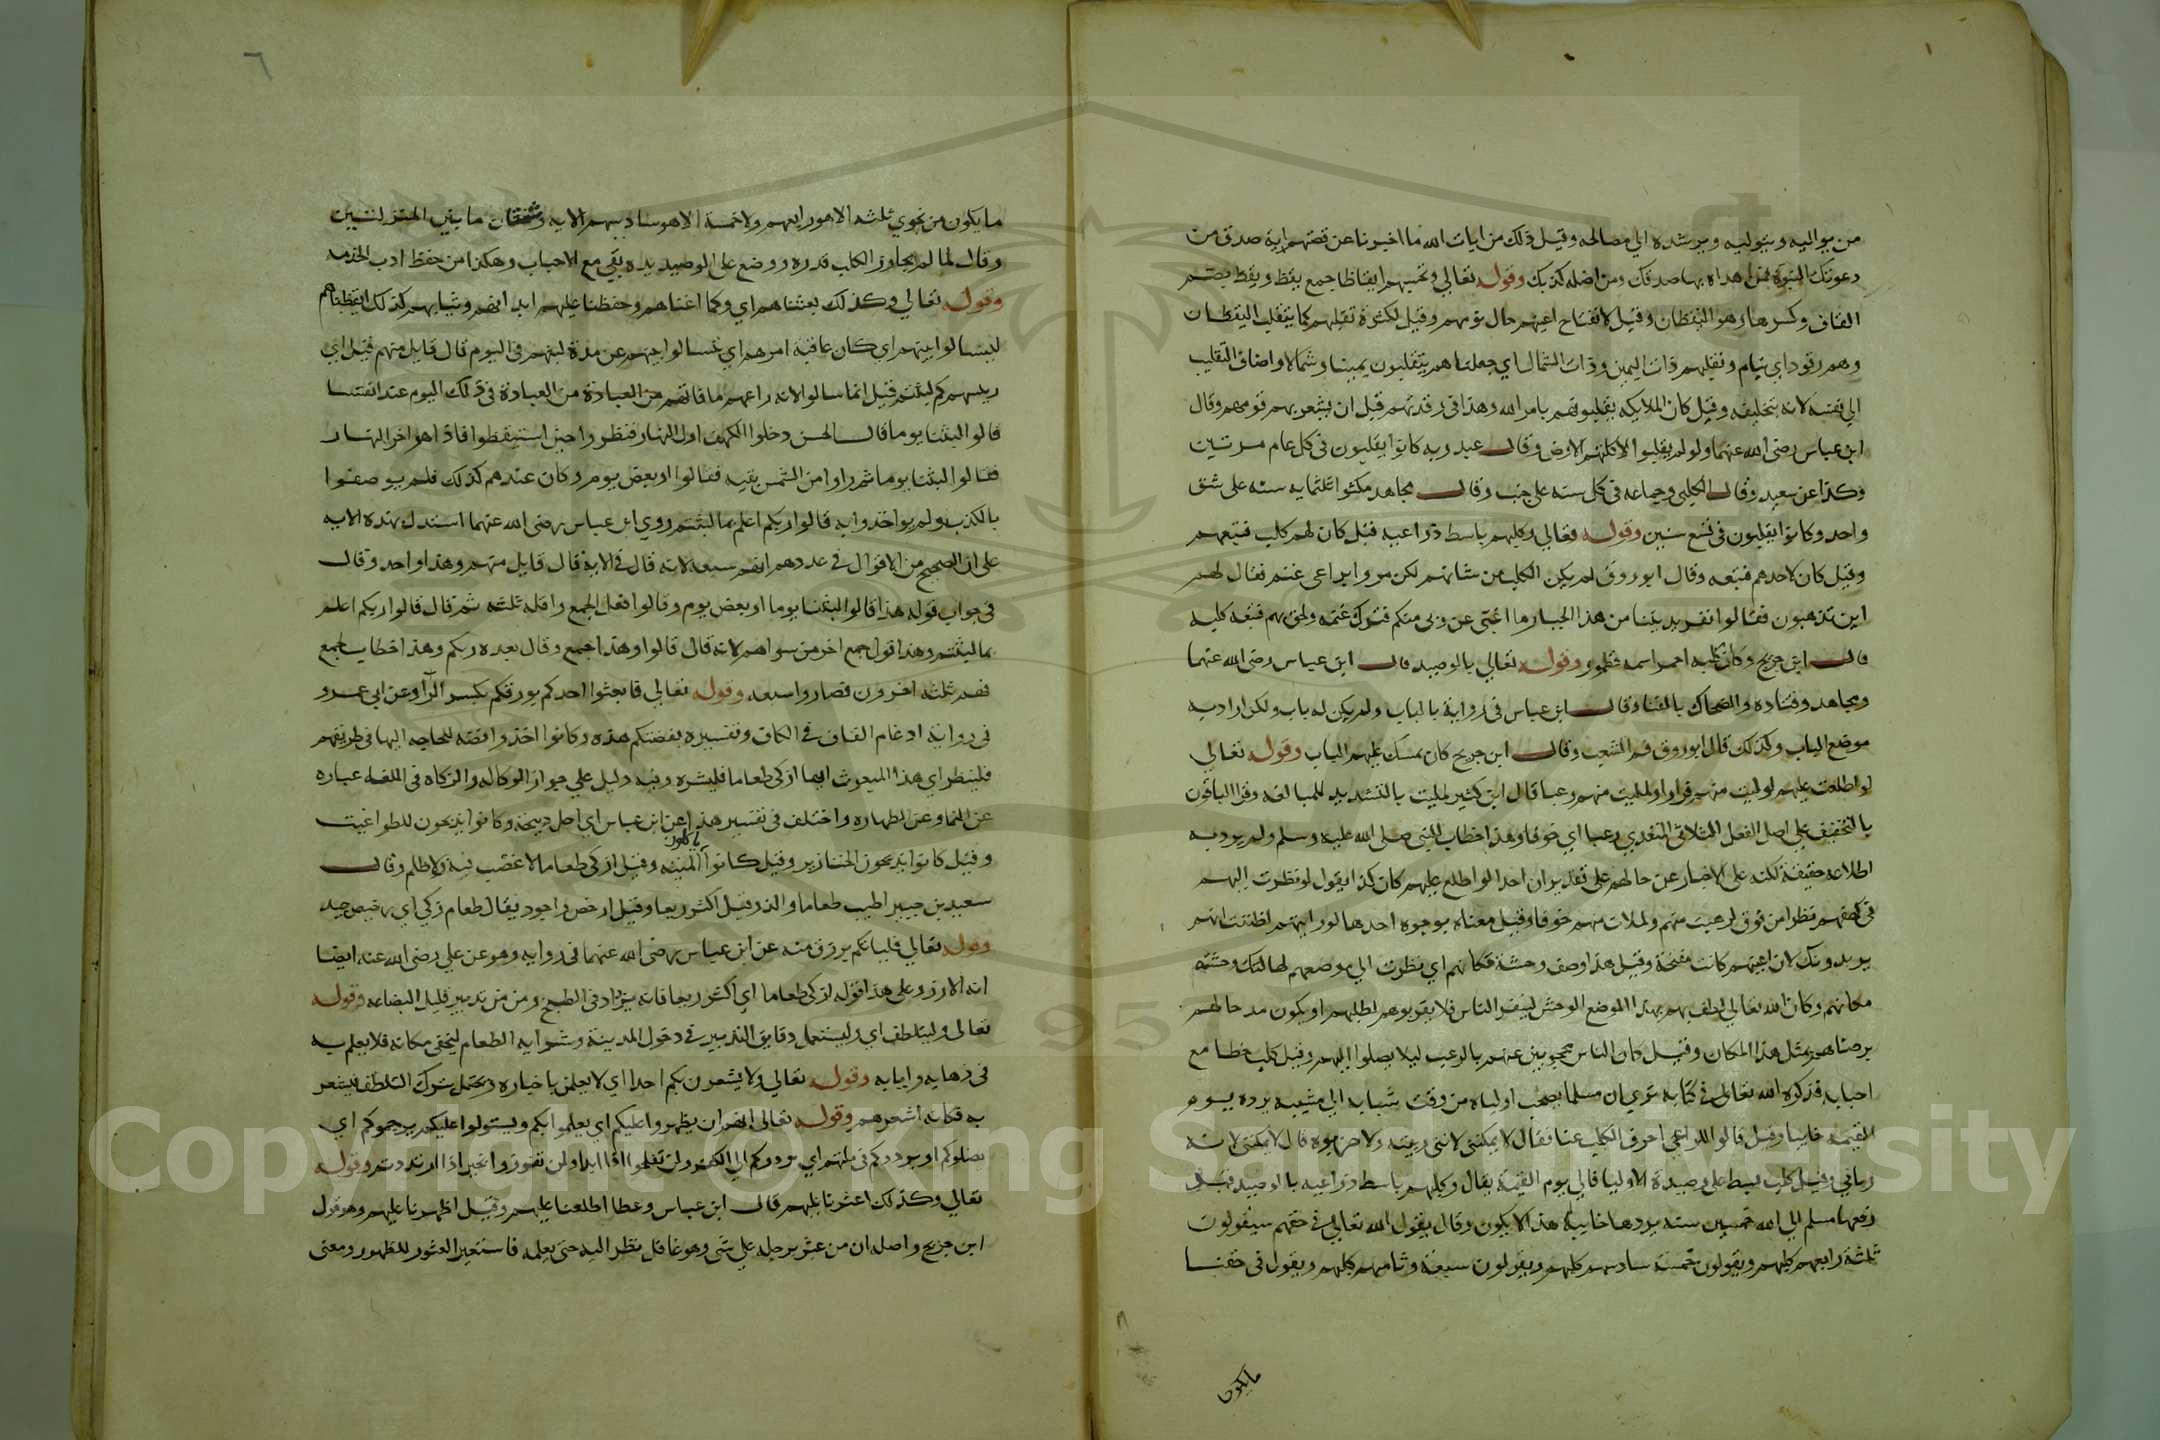 من يواليه ويتوليه ويرشده الي مصالحه وقيل ذلك من ايات الله ما اخبرنا عن قصتهم اية صدق من
دعوتك النبوة فمن هداه بها صدقك ومن اضله كذبك وقوله تعالي وتحسبهم ايقاظا جمع يقظ ويقظ بضم
القاف وكسرها وهو اليقظان وقيل لانفتاح اعينهم حال نومهم وقيل لكثرة تقلبهم كما يتقلب اليقظان
وهم رقود اي نيام ونقلبهم ذات اليمين وذات الشمال اي جعلناهم يتقلبون يمينا وشمالا واضاف التقليب
الي نفسه لانه بتخليقه وقيل كان الملايكه يقلبونهم بامر الله وهذا في رقدتهم قبل ان يشعر بهم قومهم وقال
ابن عباس رضى الله عنهما ولو لم يقلبوا الاكلتهم الارض وقال عبد ربه كانوا يقلبون في كل عام مرتين
وكذا عن سعيد وقال الكلبي وجماعه في كل سنه على جنب وقال مجاهد مكثوا ثلثمايه سنه على شق
واحد وكانوا يقلبون في تسع سنين وقوله تعالي وكلبهم باسط ذراعيه قيل كان لهم كلب فتبعهم
وقيل كان لاحدهم فتبعه وقال ابوروق لم يكن الكلب من شانهم لكن مروا براعى غنم فقال لهم
اين تذهبون فقالوا نفر بديننا من هذا الجبار ما اغنى عن ربي منكم فترك غنمه ولحق بهم فتبعه كلبه
قال ابن جريج وكان كلبه احمر اسمه قطمور وقوله تعالي بالوصيد قال ابن عباس رضى الله عنهما
ومجاهد وقتاده والضحاك بالفنا وقال ابن عباس في رواية بالباب ولم يكن له باب ولكن اراد به
موضع الباب وكذلك قال ابوروق فم الشعب وقال ابن جريج كان يمسك عليهم الباب وقوله تعالي
لو اطلعت عليهم لوليت منهم فرارا ولمليت منهم رعبا قال ابن كثير لمليت بالتشديد للمبالغه وقرا الباقون
بالتخفيف على اصل الفعل الثلاثى المتعدي رعبا اي خوفا وهذا خطاب النبي صلى الله عليه وسلم ولم يرد به
اطلاعه حقيقة لكنه على الاخبار عن حالهم على تقدير ان احدا لو اطلع عليهم كان كذا يقول لو نظرت اليهم
في كهفهم نظرا من فوق لرهبت منهم ولملات منهم خوفا وقيل معناه بوجوه احدها لو رايتهم لظننت انهم
يريدونك لان اعينهم كانت مفتحة وقيل هذا وصف وحشة مكانهم اي نظرت الي موضعهم لهالتك وحشة
مكانهم وكان الله تعالي لطف بهم بهذا الموضع الوحش لينفر الناس فلا يقربوهم لطلبهم او يكون مدحا لهم
برضاهم بمثل هذا المكان وقيل كان الناس محجوبين عنهم بالرعب ليلا يصلوا اليهم وقيل كلب خطا مع
احبابه فذكره الله تعالى في كتابه تري ان مسلما يصحب اولياه من وقت شبابه الي مشيبه يرده يوم
القيمة خايبا وقيل قالوا للراعي اصرف الكلب عنا فقال لا يمكننى لانني ربيته ولا ضربوه قال لا يمكننى لانه
رباني وقيل كلب بسط على وصيدة الاوليا فالي يوم القيمة يقال وكلبهم باسط ذراعيه بالوصيد فيد
رفعها مسلم الي الله خمسين سنه يردها خايبة هذا لا يكون وقال يقول الله تعالي في حقهم سيقولون
ثلثة رابعهم كلبهم ويقولون خمسة سادسهم كلبهم ويقولون سبعة وثامنهم كلبهم ويقول في حقنا
مايكون
٦
ما يكون من نجوي ثلثه الا هو رابعهم ولا خمسة الا هو سادسهم الايه وشتان ما بين المنزلتين
وقال لما لم يجاوز الكلب قدره ووضع على الوصيد يده بقي مع الاحباب وهكذا من حفظ ادب الخدمه
وقوله تعالي وكذلك بعثناهم اي وكما اغناهم وحفظنا عليهم ابدانهم وثيابهم كذلك ايقظناهم
ليتسالوا بينهم اي كان عاقبة امرهم اي تسالوا بينهم عن مدة لبثهم في النوم قال قايل منهم قيل اي
ريسهم كم لبثتم قيل انما سالوا لانه راعهم ما فاتهم من العبادة من العبادة في ذلك اليوم عند انفسنا
قالوا لبثنا يوما قال الحسن دخلوا الكهف اول النهار فنظروا حين استيقظوا فاذا هو اخر النهار
فقالوا لبثنا يوما ثم راوا من الشمس بقيه فقالوا او بعض يوم وكان عندهم كذلك فلم يوصفوا
بالكذب ولم يواخذوا به قالوا ربكم اعلم بما لبثتم روي ابن عباس رضى الله عنهما استدل بهذه الايه
على ان الصحيح من الاقوال في عددهم انهم سبعه لانه قال في الاية قال قايل منهم وهذا واحد وقال
في جواب قوله هذا قالوا لبثنا يوما او بعض يوم وقالوا فعل الجمع واقله ثلثه ثم قال قالوا ربكم اعلم
بما لبثتم وهذا قول جمع اخر من سواهم لانه قال قالوا وهذا جمع وقال بعده ربكم وهذا خطاب لجمع
فهم ثلثه اخرون فصاروا سبعه وقوله تعالي فابعثوا احدكم بورقكم بكسر الرآ وعن ابي عمرو
في رواية ادغام القاف في الكاف وتفسيره بفضتكم هذه وكانوا اخذوا فضه للحاجه اليها في طريقهم
فلينظر اي هذا المبعوث ايها ازكى طعاما فليشره وفيه دليل علي جواز الوكاله والزكاه في اللغه عباره
عن النما وعن الطهاره واختلف في تفسير هذا عن ابن عباس اي احل ذبيحة وكانوا يذبحون للطواغيت
وقيل كانوا يذبحون الخنازير وقيل كانوا ياكلون الميته وقيل ازكى طعاما لا غصب فيه ولا ظلم وقال
سعيد بن جبير اطيب طعاما والذ وقيل اكثر ريعا وقيل ارخص واجود يقال طعام زكي اي رخيص جيد
وقوله تعالي فلياتكم برزق منه عن ابن عباس رضى الله عنهما في روايه وهو عن علي رضى الله عنه ايضا
انه الارز وعلى هذا قوله ازكى طعاما اي اكثر ريعا فانه يزداد في الطبخ ومن من تدبير قليل البضاعه وقوله
تعالى وليتلطف اي وليستعمل دقايق التدبير في دخول المدينة وشرايه الطعام ليخفى مكانه فلا يعلم به
في ذهابه وايابه وقوله تعالي ولا يشعرن بكم احدا اي لا يعلمن باخباره ويحتمل بترك التلطف فيشعر
به فكانه اشعرهم وقوله تعالى انهم ان يظهروا عليكم اي يعلموا بكم ويستولوا عليكم يرجموكم اي
يقتلوكم او يعيدوكم في ملتهم اي يردوكم الي الكفر ولن تفلحوا اذا ابدا ولن تفوزوا بخير اذا ارتددتم وقوله
تعالي وكذلك اعثرنا عليهم قال ابن عباس وعطا اطلعنا عليهم وقيل اظهرنا عليهم وهو قول
ابن جريج واصله ان من عثر برجله على شي وهو غافل نظر اليه حتى يعلمه فاستعير العثور للظهور ومعنى
Copyright © King Saud University
1957